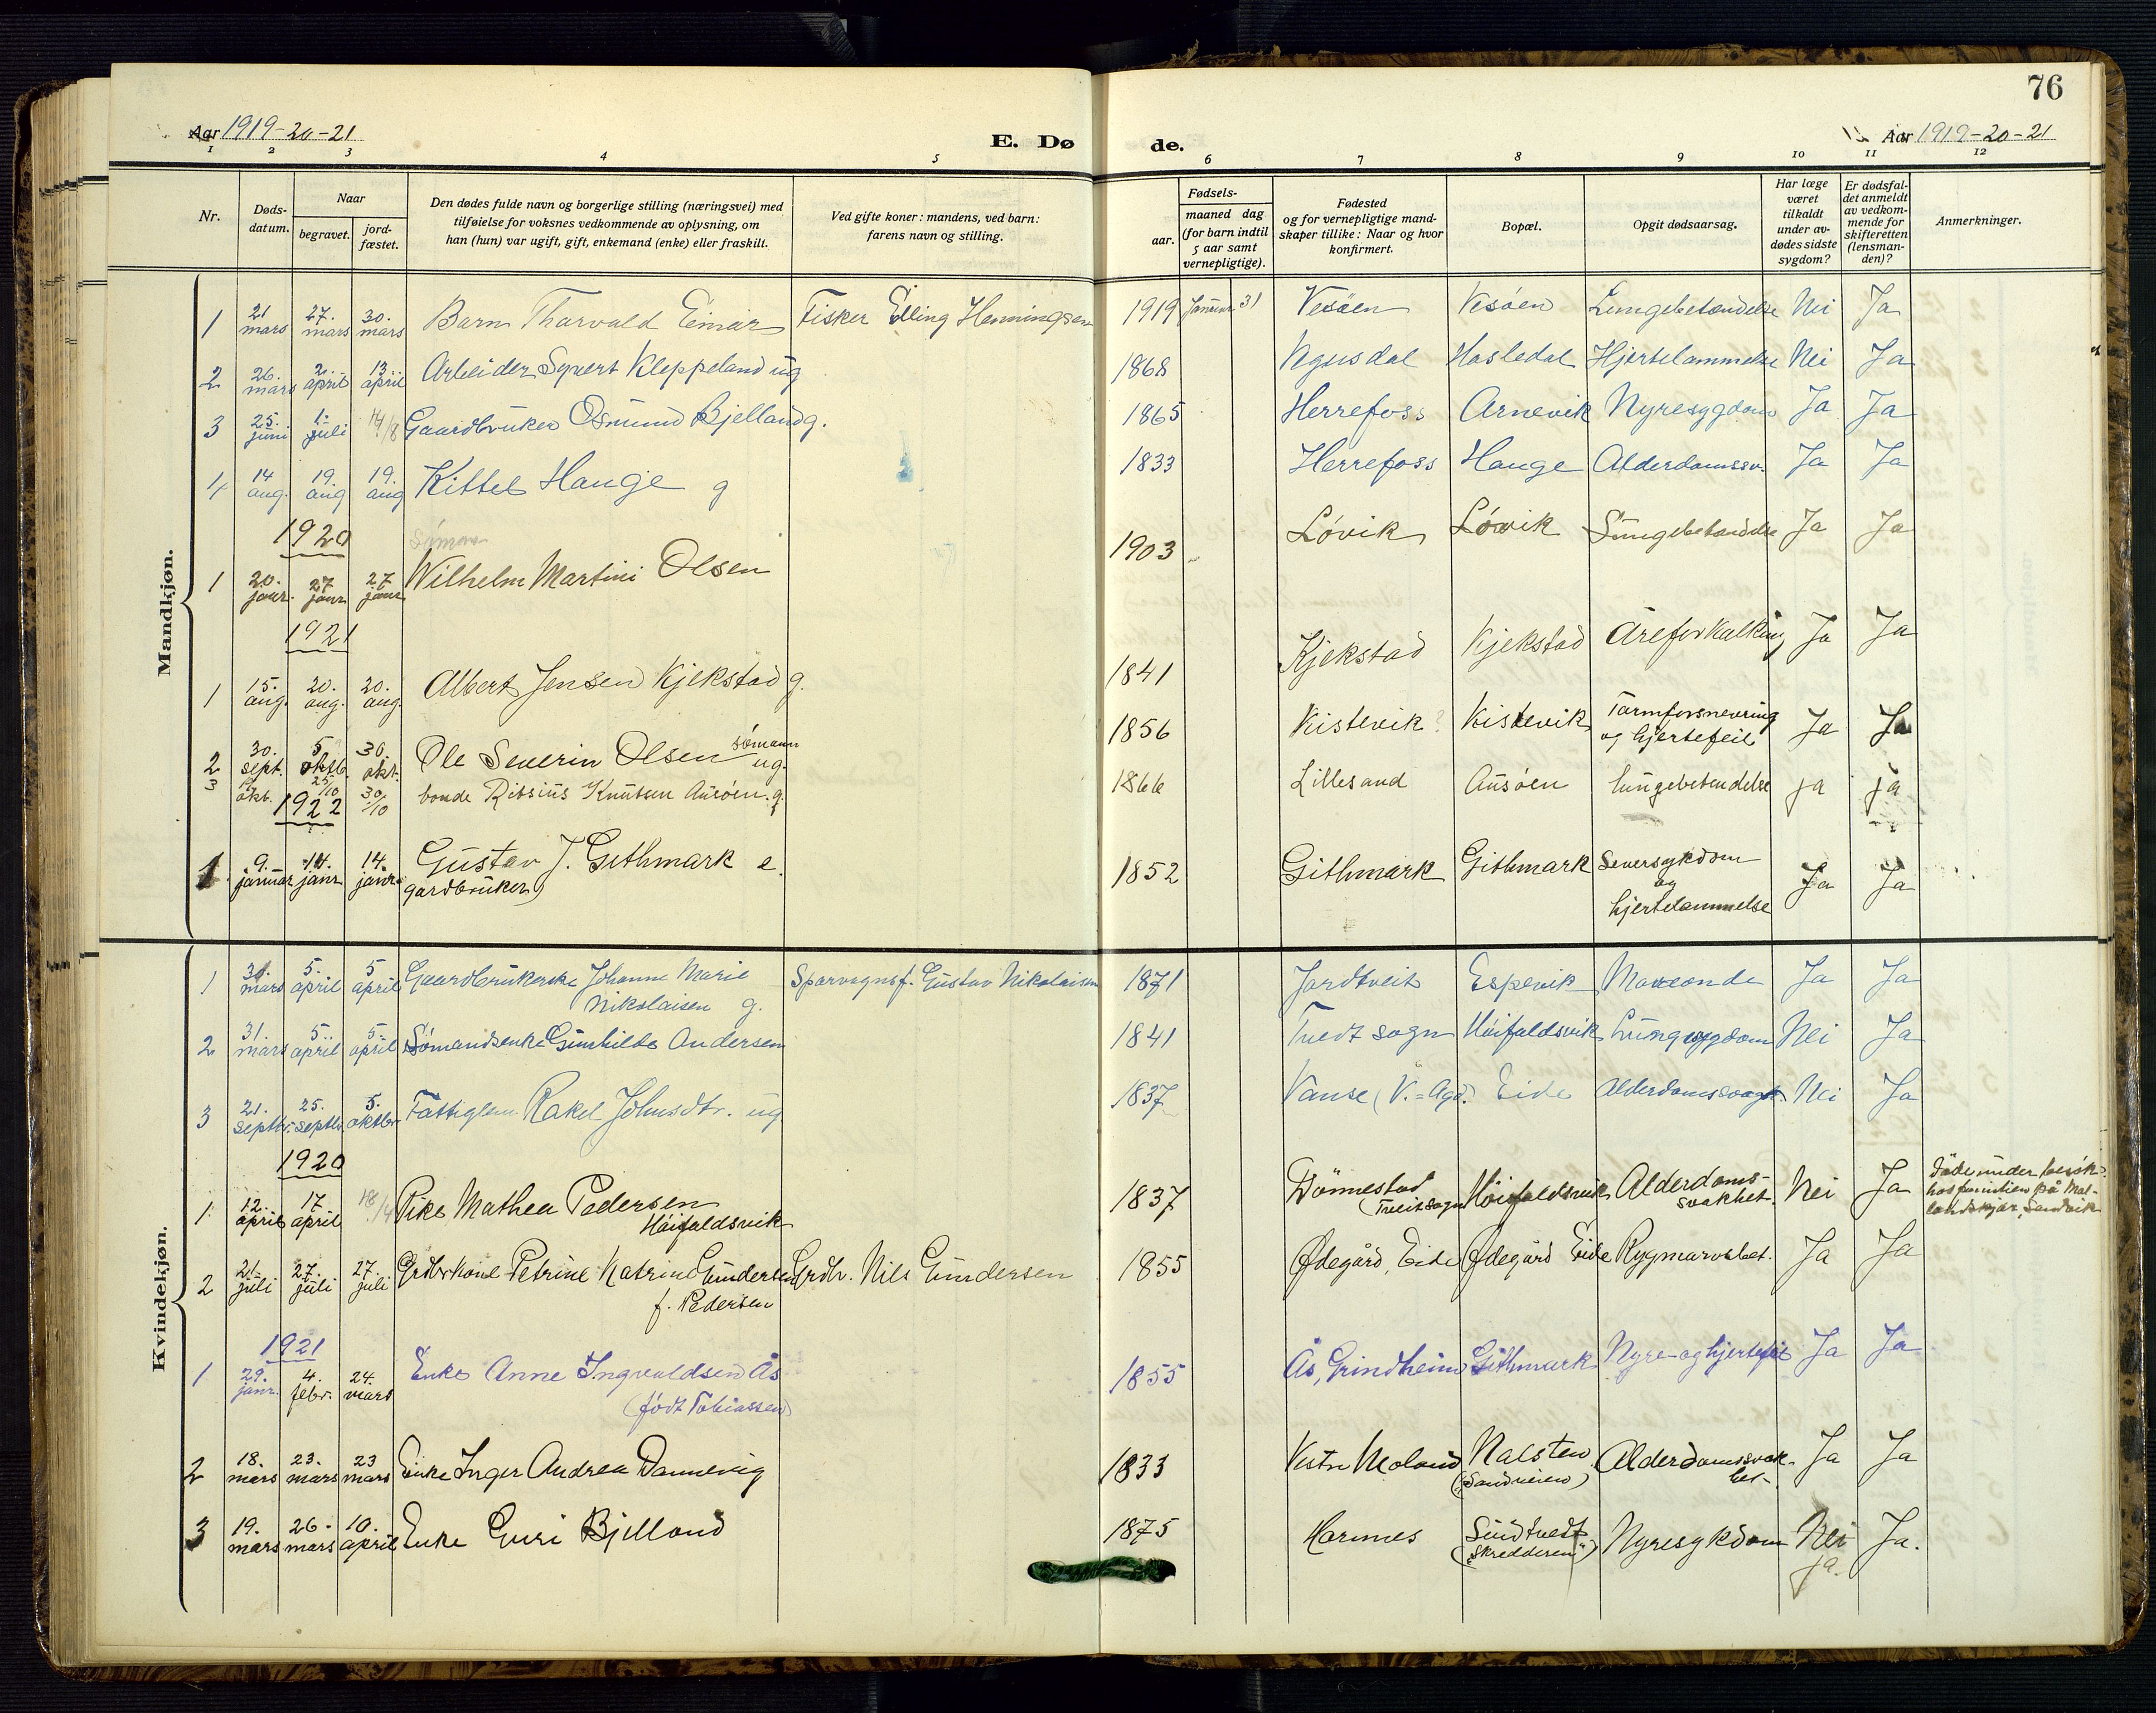 76
Aar 1919-20-21
E. Dø
de.
Aar 1919-20-21
1 2 3 4 5 6 7 8 9 10 11 12
Nr.
Døds-
datum.
Naar
begravet.
jord-
fæstet.
Den dødes fulde navn og borgerlige stilling (næringsvei) med
tilføielse for voksnes vedkommende av oplysning, om
han (hun) var ugift, gift, enkemand (enke) eller fraskilt.
Ved gifte koner: mandens, ved barn:
farens navn og stilling.
Fødsels-
aar.
maaned dag
(for barn indtil
5 aar samt
vernepligtige).
Fødested
og for vernepligtige mand-
skaper tillike: Naar og hvor
konfirmert.
Bopæl.
Opgit dødsaarsag.
Har læge
været
tilkaldt
under av-
dødes sidste
sygdom?
Er dødsfal-
det anmeldt
av vedkom-
mende for
skifteretten
(lensman-
den)?
Anmerkninger.
Mandkjøn.
1 21 mars 27. mars 30. mars Barn Tharvald Einar Fisker Elling Henningsen 1919 Januar 31 Vesöen Vesöen Lungebetændelse Nei Ja
2 26. mars 2. april 13 april Arbeider Syvert Kleppeland ug 1868 Vegusdal Hasledal Hjertelammelse Nei Ja
3 25. juni 1. juli 14/8 Gaardbruker Osmund Bjelland g. 1865 Herrefoss Arnevik Nyresygdom Ja Ja
4 14 aug. 19. aug 19. aug Kittel Hauge g 1833 Herrefoss Hauge Alderdomssv. Ja Ja
1920
Sömann
1 20. janr. 27 janr 27 janr Wilhelm Martini Olsen 1903 Lövik Lövik Lungebetændelse Ja Ja
1921
1 15. aug. 20. aug. 20. aug. Albert Jensen Kjekstad g. 1841 Kjekstad Kjekstad Åreforkalking Ja Ja
2 30. sept. 5 oktb. 30. okt. Ole Severin Olsen sömann ug. 1856 Kistevik? Kistevik Tarmforsnevring og hjertefeil Ja Ja
3 okt. 25/10 30/10 bonde Ritsius Knutsen Ausöen. g. 1866 Lillesand Ausöen lungebetendelse ja ja
1922
1 9. januar 14. janr 14. janr. Gustav J. Githmark e. 1852 Githmark Githmark Leversykdom Ja Ja
gardbruker
og
hjertelammelse
Kvindekjøn.
1 mars 5. april 5 april Gaardbrukerske Johanne Marie Sporvognsf. Gustav Nikolaisen 1871 Jordtveit Espevik Maveonde Ja Ja
Nikolaisen g.
2 31. mars 5. april 5. april Sömandsenke Gunhilde Andersen 1841 Tvedt sogn Höifaldsvik Lungesygdom Nei Ja
3 21. septbr. 25. septbr. 5. oktbr. Fattiglem. Rakel Johnsdtr. ug 1837 Vanse (V.=Agd.) Eide Alderdomssvagh. Nei Ja
1920
1 12. april 17 april 18/4 Pike Mathea Pedersen 1837 Dönnestad Höifaldsvik Alderdoms- Nei Ja Döde under besök
Höifaldsvik (Tveit sogn svakhet. hos familien på Mal-
landskjær, Sandvik
2 21. juli 27. juli 27. juli Grdbrkone Petrine Katrine Gundersen Grdbr. Nils Gundersen 1855 Ødegård, Eide Ødegård Eide Rygmarvsbet. Ja Ja
f. Pedersen
1921
1 29. janr. 4. febr. 24. mars Enke Anne Ingvaldsen Ås 1855 Ås, Grindheim Githmark Nyre- og hjertefeil Ja Ja
(födt Tobiassen)
2 18. mars 23. mars 23 mars Enke Inger Andrea Dannevig 1833 Vestre Moland Nalsten Alderdomssvak- Ja Ja
(Sandveien) het-
3 19. mars 26. mars 10. april Enke Guri Bjelland 1875 Hornnes Sundtvedt Nyresykdom Nei Ja.
("Skredderen") ja.